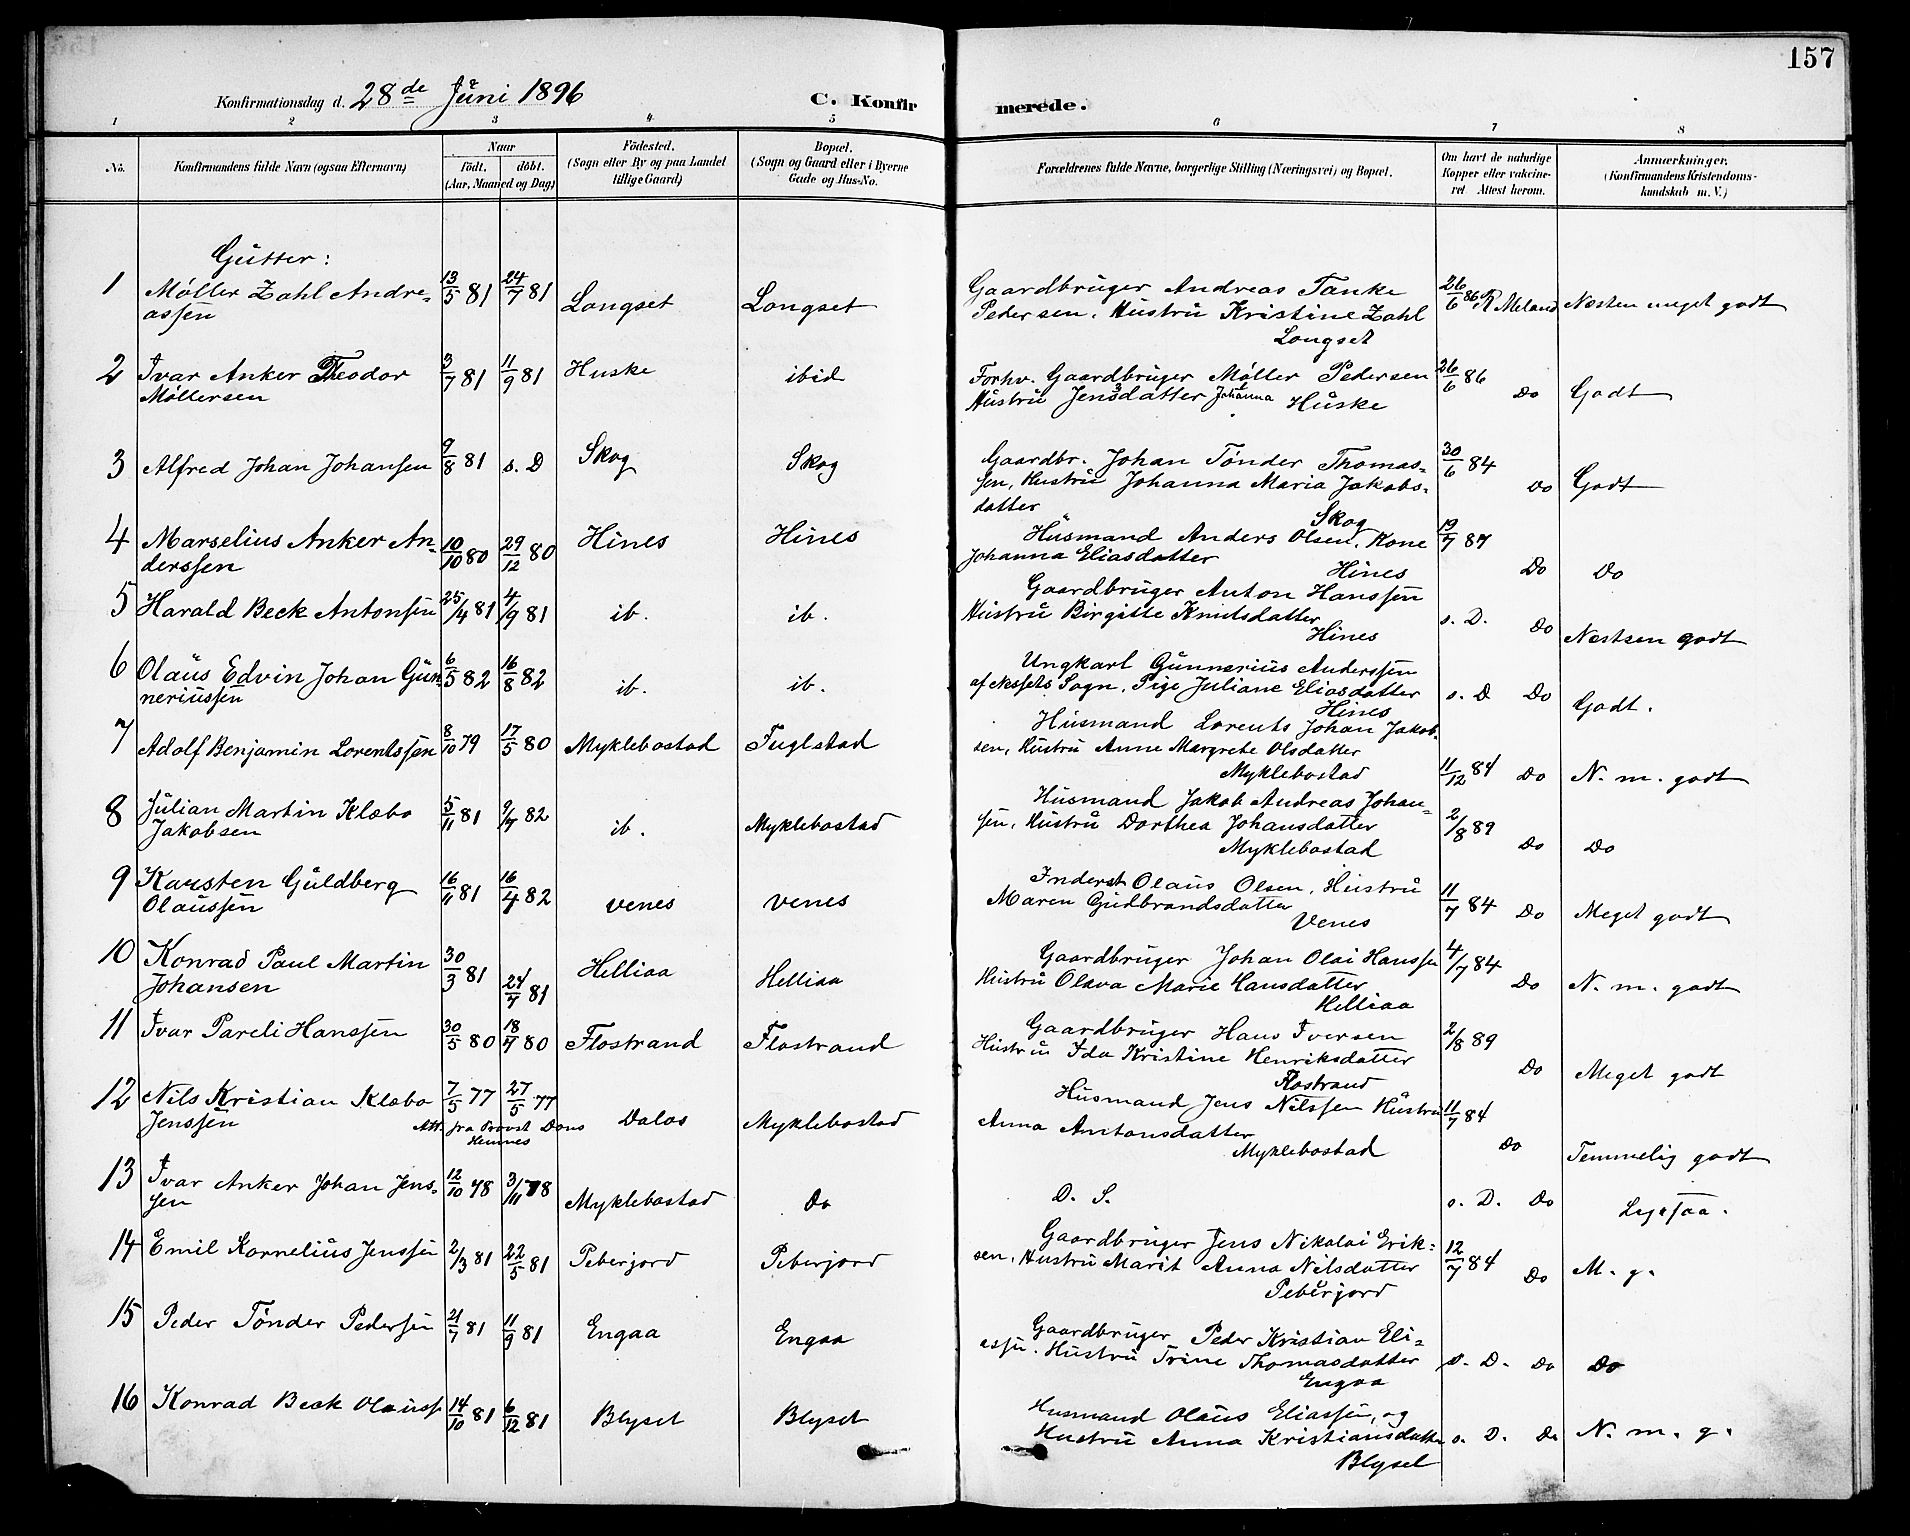 157
Konfirmationsdag d. 28de Juni 1896
C. Konfirmerede.
1 2 3 4 5 6 7 8
No. Konfirmandens fulde Navn (ogsaa Efternavn) Naar født. døbt. (Aar, Maaned og Dag) Fødested. (Sogn eller By og paa Landet tillige Gaard) Bopæl. (Sogn og Gaard eller i Byerne Gade og Hus-No. Forældrenes fulde Navne, borgerlige Stilling (Næringsvei) og Bopæl. Om havt de naturlige Kopper eller vakcineret. Attest herom. Anmærkninger. (Konfirmandens Kristendomskundskab m. V.)
Gutter:
1 Møller Zahl Andre- 13/5 81 24/7 81 Longset Longset Gaardbruger Andreas Tanke 26/6 86 R Meland Næsten meget godt
assen Pedersen. Hustru Kristine Zahl
Longset
2 Ivar Anker Theodor 3/7 81 11/9 81 Huske ibid Forhv. Gaardbruger Møller Pedersen 26/6 86 Do Godt
Møllersen Hustru Jensdatter Johanna Huske
3 Alfred Johan Johansen 9/8 81 s. D Skog Skog Gaardbr. Johan Tønder Thomas- 30/6 84 Do Godt
sen, Hustru Johanna Maria Jakobs-
datter Skog
4 Marselius Anker An- 10/10 80 29/12 80 Hines Hines Husmand Anders Olsen. Kone 19/7 87 Do Do
derssen Johanna Eliasdatter Hines
5 Harald Beck Antonsen 25/4 81 4/9 81 ib. ib. Gaardbruger Anton Hanssen s. D. Do Næstsen godt
Hustru Birgitte Knutsdatter
Hines
6 Olaus Edvin Johan Gun- 6/5 82 16/8 82 ib. ib. Ungkarl Gunnerius Anderssen s. D Do Godt.
neriussen af Nessets Sogn. Pige Juliane Eliasdatter
Hines
7 Adolf Benjamin Lorentssen 8/10 79 17/5 80 Myklebostad Fuglstad Husmand Lorents Johan Jakob-
sen, Hustru Anne Margrete Olsdatter
Myklebostad 11/12 84 Do N. m. godt
8 Julian Martin Klæbo 5/11 81 9/7 82 ib. Myklebostad Husmand Jakob Andreas Johan- 2/8 89 Do Do
Jakobsen sen, Hustru Dorthea Johansdatter
Myklebostad
9 Karsten Guldberg 16/11 81 16/4 82 Venes Venes Inderst Olaus Olsen, Hustru 11/7 84 Do Meget godt
Olaussen Maren Gudbrandsdatter
Venes
10 Konrad Paul Martin 30/3 81 24/7 81 Helliaa Helliaa Gaardbruger Johan Olai Hanssen 4/7 84 Do N. m. godt
Johansen Hustru Olava Marie Hansdatter
Helliaa
11 Ivar Pareli Hanssen 30/5 80 18/7 80 Flostrand Flostrand Gaardbruger Hans Iversen 2/8 89 Do Meget godt
Hustru Ida Kristine Henriksdatter
Flostrand
12 Nils Kristian Klæbo 7/5 77 27/5 77 Dalos Myklebostad Husmand Jens Nilssen Hustru 11/7 84 Do Temmelig godt
Jenssen Att. fra Provst Dons Anna Antonsdatter
Hemnes Myklebostad
13 Ivar Anker Johan Jens- 12/10 78 3/11 78 Myklebostad Do D. S. s. D. Do Ligesaa.
sen
14 Emil Kornelius Jenssen 2/3 81 22/5 81 Peberjord Peberjord Gaardbruger Jens Nikolai Erik- 12/7 84 Do M. g.
sen. Hustru Marit Anna Nilsdatter
Peberjord
15 Peder Tønder Pedersen 21/7 81 11/9 81 Engaa Engaa Gaardbruger Peder Kristian Eli-
assen. Hustru Trine Thomasdatter s. D. Do Do
Engaa
16 Konrad Beck Olauss 14/10 81 6/12 81 Blyset Blyset Husmand Olaus Eliassen, og
Hustru Anna Kristiansdatter s. D. Do N. m. g.
Blyset